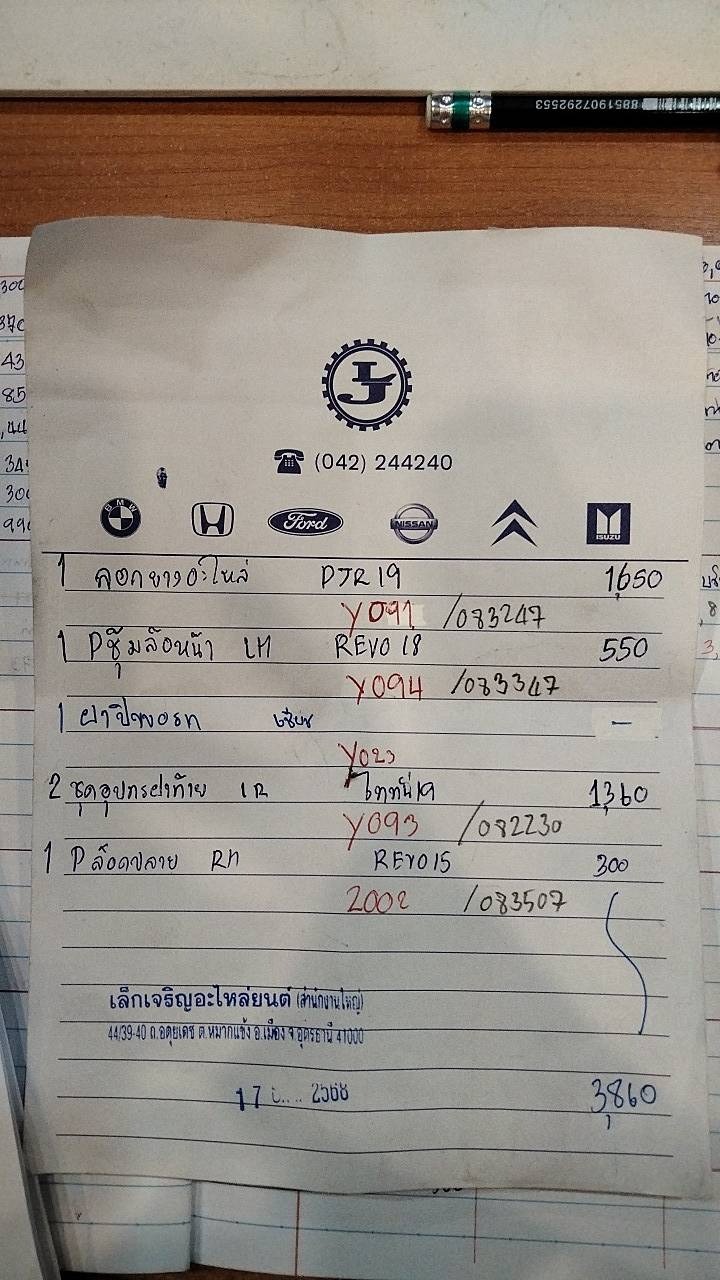 8851907292553
LJ
(042) 244240
BMW Ford NISSAN ISUZU
1 ยางอะไหล่ DJR19 1,650
Y091 /083247
1 Pซุ้มล้อหน้า LH REVO 18 550
Y094 /083347
1 ฝาปิด เซียซ -
Y023
2 ชุดอุปกรฝาท้าย LR ไททั่น19 1,360
Y093 /082230
1 Pล็อดปลาย RH REVO15 300
2002 /083507
เล็กเจริญอะไหล่ยนต์ (สำนักงานใหญ่)
44/39-40 ถ.อดุยเดช ต.หมากแข้ง อ.เมือง จ.อุดรธานี 41000
17 2568
3,860